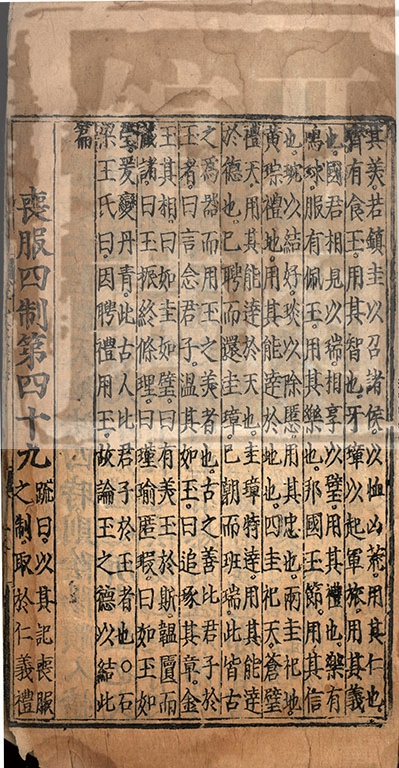 其美若鎮圭以召諸侯以恤凶荒用其仁也
齊有食玉用其智也牙璋以起軍旅用其義
也國君相見以瑞相享以璧用其禮也樂有
鳴球服有佩玉用其樂也邦國玉節用其信
也琬以結好琰以除慝用其忠也兩圭祀地
黃琮禮地用其能達於地也四圭祀天蒼璧
禮天用其能達於天也圭璋特達用其能達
於德也已聘而還圭璋已朝而班瑞此皆古
之為器而用玉之美者也古之善比君子於
玉者曰言念君子溫其如玉曰追琢其章金
玉其相曰如圭如璧曰有美玉於斯韞匵而
藏諸曰玉振終條理曰瑾瑜匿瑕曰如玉如
瑩爰變丹青此古人比君子於玉者也○石
梁王氏曰因聘禮用玉故論玉之德以結此
篇
喪服四制第四十九
疏曰以其記喪服
之制取於仁義禮